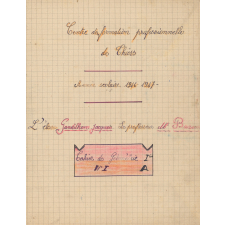 Centre de formation professionnelle
de Thiers
Année scolaire 1946 1947.
L'élève Jacques Le professeur Mr
Cahier de I
N° I A